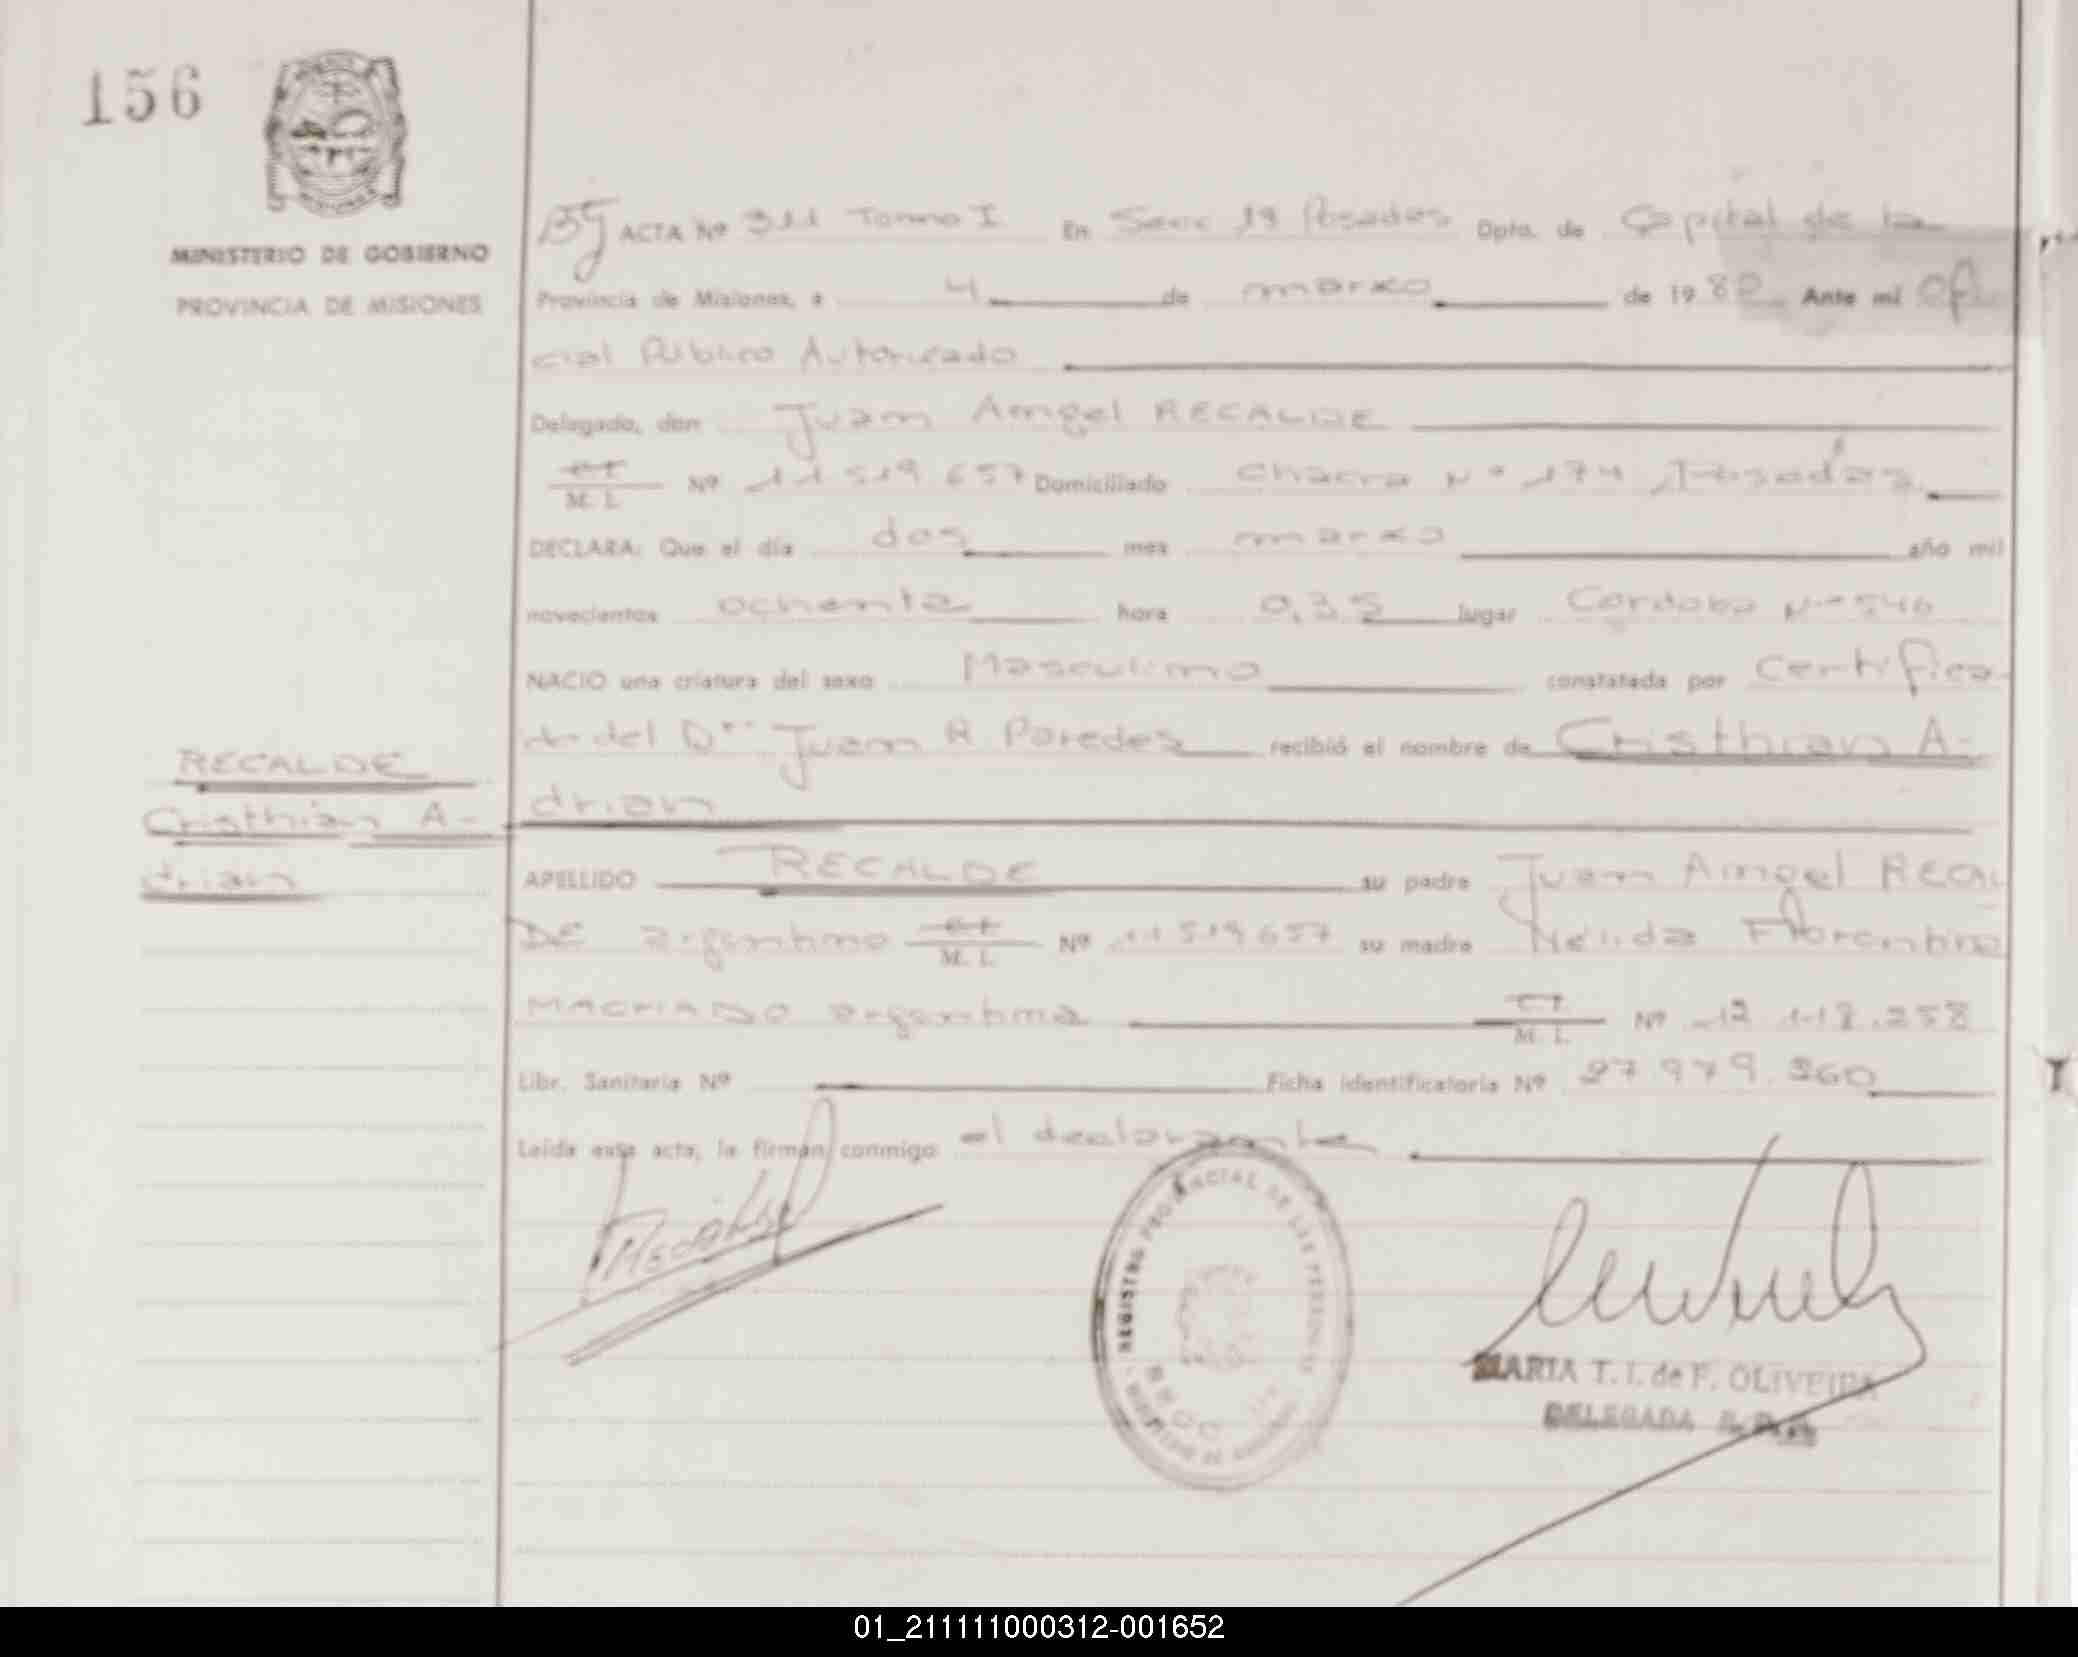 156
MINISTERIO DE GOBIERNO
PROVINCIA DE MISIONES
ACTA Nº 311 Tomo I En Secc 1ª Posadas Dpto. de Capital de la
Provincia de Misiones, a 4 de marzo de 1980 Ante mi Ofi
cial Público Autorizado
Delegado, don Juan Angel RECALDE
M. I. Nº 11.519.657 Domiciliado Chacra Nº 174, Posadas
DECLARA: Que el día dos mes marzo año mil
novecientos ochenta hora 0,35 lugar Cordoba Nº 546
NACIO una criatura del sexo Masculino constatada por Certifica
do del Dr. Juan R Paredes recibió el nombre de Cristhian A-
drian
RECALDE
Cristhian A-
drian
APELLIDO RECALDE su padre Juan Angel RECAL
DE argentino M. I. Nº 11519657 su madre Nélida Florentina
MACHADO argentina C.I. M. I. Nº 12.118.258
Libr. Sanitaria Nº Ficha identificatoria Nº 27.979.260
Leída esta acta, la firman conmigo el declarante
REGISTRO PROVINCIAL DE LAS PERSONAS
MARIA T. I. de F. OLIVEIRA
DELEGADA
01_211111000312-001652